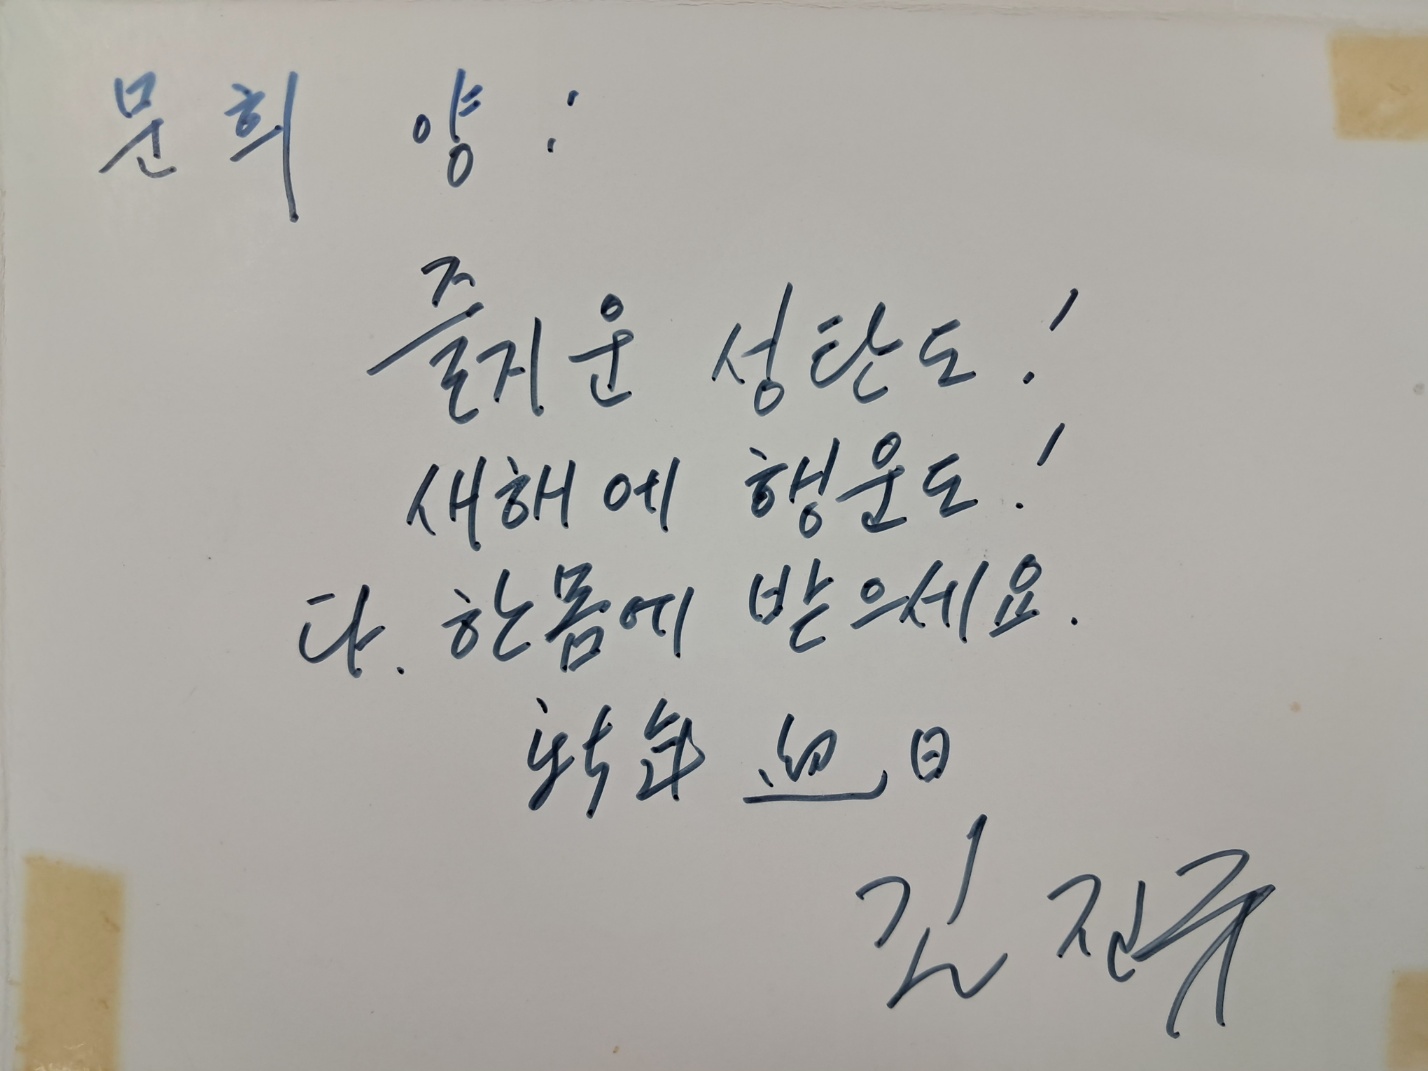 문희 양:
즐거운 성탄도!
새해에 행운도!
다. 한몸에 받으세요.
新年 迎日
김진규